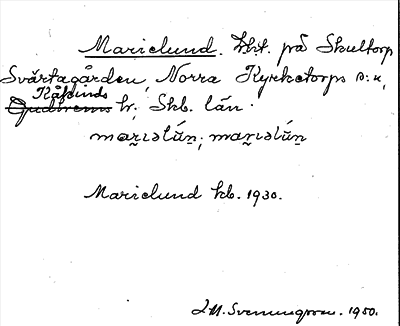 Marielund. lht. på Skultorp
Svärtagården, Norra Kyrketorps s:n,
Kåkinds
Gudhems hr; Skb. län.
mariəlún; mariəlún
Marielund kb. 1930.
J.M. Svenungsson. 1950.